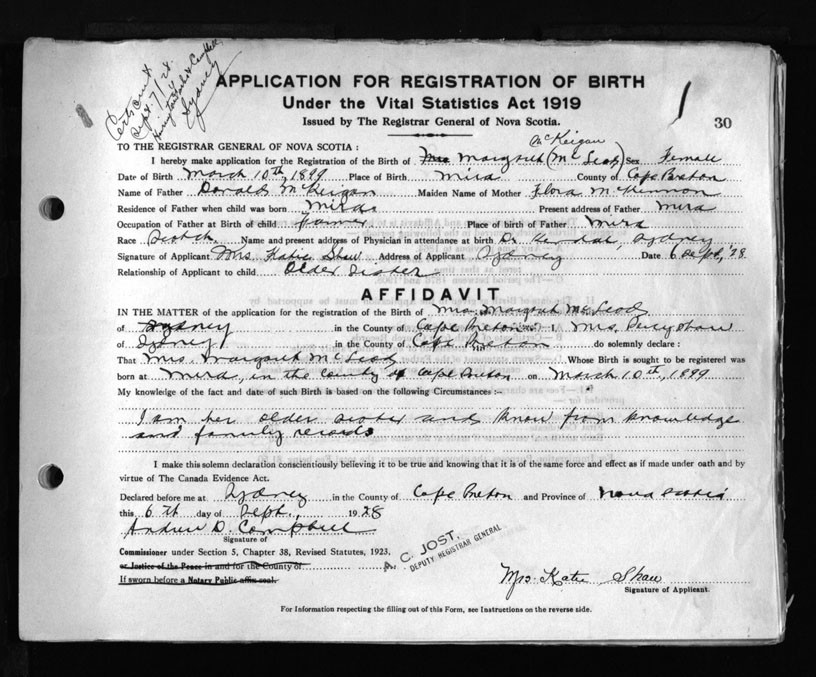 Certs sent
Sept. 7/28.
Sydney
APPLICATION FOR REGISTRATION OF BIRTH
Under the Vital Statistics Act 1919
Issued by The Registrar General of Nova Scotia.
30
McKeigan
TO THE REGISTRAR GENERAL OF NOVA SCOTIA :
I hereby make application for the Registration of the Birth of Mrs Margaret (McLeod) Sex Female
Date of Birth March 10th, 1899 Place of Birth Mira County of Cape Breton
Name of Father Donald McKeigan Maiden Name of Mother Flora McKinnon
Residence of Father when child was born Mira Present address of Father Mira
Occupation of Father at Birth of child farmer Place of birth of Father Mira
Race Scotch Name and present address of Physician in attendance at birth Dr. Kendal, Sydney
Signature of Applicant Mrs. Katie Shaw Address of Applicant Sydney Date 6 Sept, '28
Relationship of Applicant to child Older Sister
AFFIDAVIT
IN THE MATTER of the application for the registration of Birth of Mrs. Margaret McLeod
of Sydney in the County of Cape Breton I, Mrs. Percy Shaw
of Sydney in the County of Cape Breton do solemnly declare :
That Mrs. Margaret McLeod Whose Birth is sought to be registered was
born at Mira, in the County of Cape Breton on March 10th, 1899
My knowledge of the fact and date of such Birth is based on the following Circumstances :—
I am her older sister and know from knowledge
and family records
I make this solemn declaration conscientiously believing it to be true and knowing that it is of the same force and effect as if made under oath and by
virtue of The Canada Evidence Act.
Declared before me at Sydney in the County of Cape Breton and Province of Nova Scotia
this 6th day of Sept., 1928
Andrew D. Campbell
Signature of
Commissioner under Section 5, Chapter 38, Revised Statutes, 1923,
or Justice of the Peace in and for the County of
If sworn before a Notary Public affix seal.
C. JOST,
DEPUTY REGISTRAR GENERAL
Mrs. Katie Shaw
Signature of Applicant.
For Information respecting the filling out of this Form, see Instructions on the reverse side.